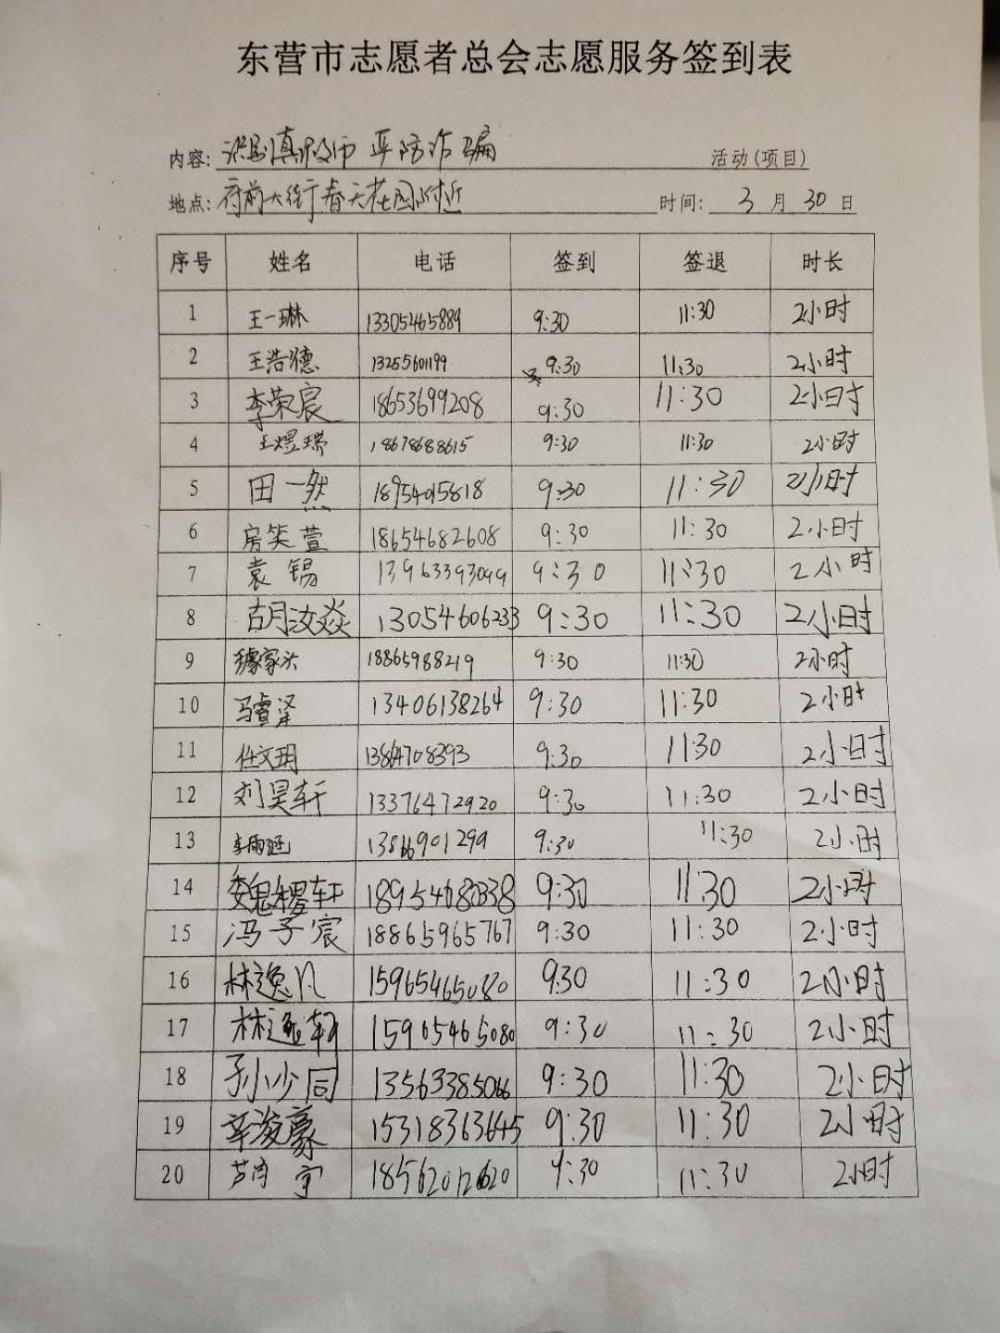 东营市志愿者总会志愿服务签到表
内容: 识别真假 严防诈骗 活动(项目)
地点: 府前大街春天花园附近 时间: 3 月 30 日
序号 姓名 电话 签到 签退 时长
1 王一琳 13305465889 9:30 11:30 2小时
2 王浩德 13255601199 9:30 11:30 2小时
3 李荣宸 18653699208 9:30 11:30 2小时
4 王煜瑞 18678688615 9:30 11:30 2小时
5 田一然 18954015818 9:30 11:30 2小时
6 房笑萱 18654682608 9:30 11:30 2小时
7 袁锡 13963393099 9:30 11:30 2小时
8 胡汝焱 13054606233 9:30 11:30 2小时
9 18865988219 9:30 11:30 2小时
10 马睿泽 13406138264 9:30 11:30 2小时
11 任文玥 13864708393 9:30 11:30 2小时
12 刘昊轩 13376472920 9:30 11:30 2小时
13 13866901299 9:30 11:30 2小时
14 魏稷轩 9:30 11:30 2小时
15 冯子宸 18865965767 9:30 11:30 2小时
16 林逸凡 15965465080 9:30 11:30 2小时
17 林逸轩 15965465080 9:30 11:30 2小时
18 孙少同 13563385066 9:30 11:30 2小时
19 辛浚豪 15318363645 9:30 11:30 2小时
20 18562012620 9:30 11:30 2小时